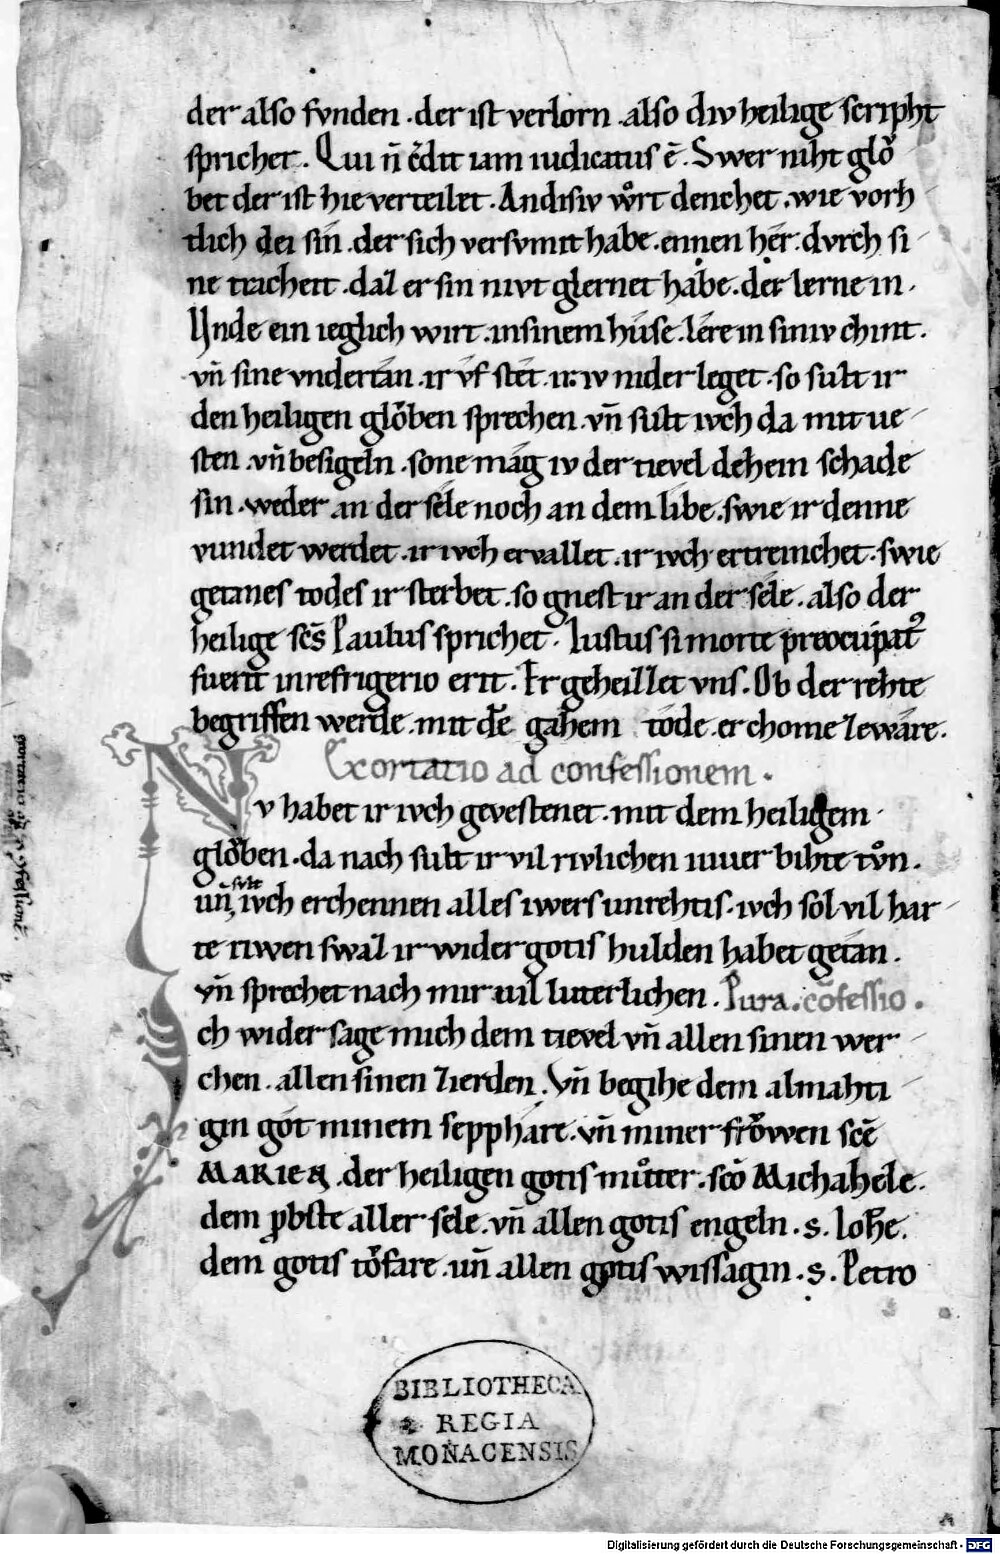 der also fvnden · der ist verlorn · also div heilige scripht
sprichet · Qui n̄ c̄dit iam iudicatus ē · Swer niht glǒ
bet der ist hie verteilet · An disiv wͦrt denchet · wie vorh
tlich dei sin · der sich versvmit habe · ennen her · dvrch si
ne tracheit · daz er sin nivt glernet habe · der lerne in ·
Vnde ein ieglich wirt · in sinem huse · lere in siniv chint ·
vn̄ sine vndertan · ir vf stet · ir iv nider leget · so sult ir
den heiligen glǒben sprechen · vn̄ sult ivch da mit ue
sten · vn̄ besigeln · sone mag iv der tievel dehein schade
sin · weder an der sele noch an dem libe · swie ir denne
vundet werdet · ir ivch ervallet · ir ivch ertreinchet · swie
getanes todes ir sterbet · so gnest ir an der sele · also der
heilige sc̄s Paulus sprichet · Iustus si morte preocupat᷒
fuerit in refrigerio erit · Er geheizzet vns · Ob der rehte
begriffen werde · mit dē gahem tode · er chome ze ware ·
Exortatio ad confessionem ·
Nv habet ir ivch gevestenet · mit dem heiligem ·
glǒben · da nach sult ir vil rivlichen iuuer bihte tͦvn ·
un̄ sult ivch erchennen alles iwers unrehtis · ivch sol vil har
te riwen swaz ir wider gotis hulden habet getan ·
vn̄ sprechet nach mir uil luterlichen · Pura · cōfessio ·
Ich wider sage mich dem tievel vn̄ allen sinen wer
chen · allen sinen zierden · Vn̄ begihe dem almahti
gin got minem sepphare · vn̄ miner frǒwen sc̄e
MARIEN · der heiligen gotis mͦutter · sc̄o Michahele ·
dem p̄bste aller sele · vn̄ allen gotis engeln · s · Ioh̄e ·
dem gotis tǒfare · un̄ allen gotis wissagin · s · Petro
BIBLIOTHECA
REGIA
MONACENSIS
Digitalisierung gefördert durch die Deutsche Forschungsgemeinschaft - DFG